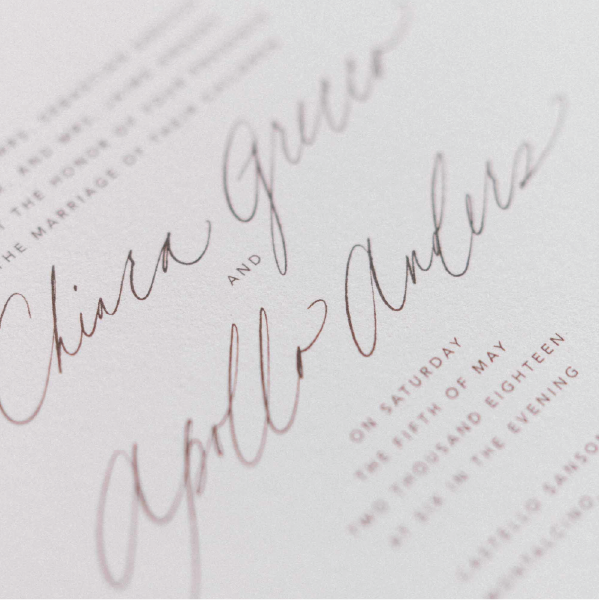 MRS. SEBASTIAN
AND MRS. JAIME
THE HONOR OF YOUR PRESENCE
THE MARRIAGE OF THEIR CHILDREN
Chiara Grecco
AND
Apollo Anders
ON SATURDAY
THE FIFTH OF MAY
TWO THOUSAND EIGHTEEN
AT SIX IN THE EVENING
CASTELLO
MONTALCINO,